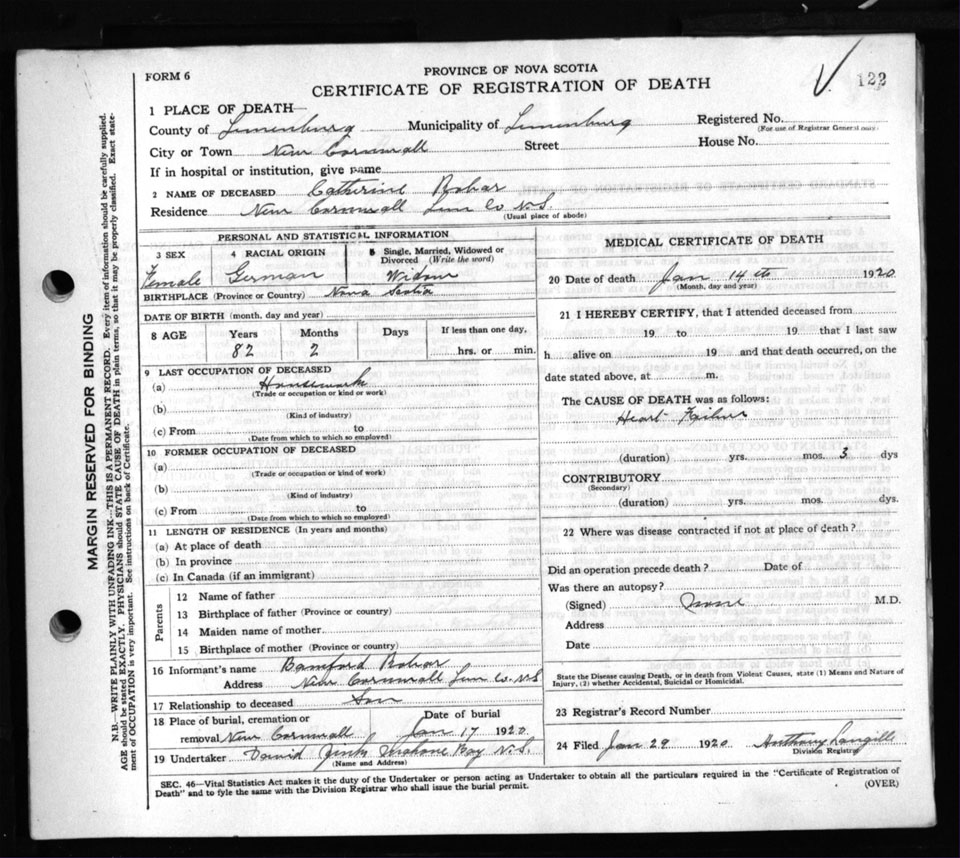 FORM 6
PROVINCE OF NOVA SCOTIA
CERTIFICATE OF REGISTRATION OF DEATH
122
1 PLACE OF DEATH
County of Lunenburg Municipality of Lunenburg Registered No.
(For use of Registrar General only)
City or Town New Cornwall Street House No.
If in hospital or institution, give name
2 NAME OF DECEASED Catherine Rohar
Residence New Cornwall Lun Co N.S.
(Usual place of abode)
PERSONAL AND STATISTICAL INFORMATION
3 SEX 4 RACIAL ORIGIN 5 Single, Married, Widowed or Divorced (Write the word)
Female German Widow
BIRTHPLACE (Province or Country) Nova Scotia
DATE OF BIRTH (month, day and year)
8 AGE Years Months Days If less than one day,
82 2 hrs. or min.
9 LAST OCCUPATION OF DECEASED
(a) Housework
(Trade or occupation or kind or work)
(b)
(Kind of industry)
(c) From to
(Date from which to which so employed)
10 FORMER OCCUPATION OF DECEASED
(a)
(Trade or occupation or kind of work)
(b)
(Kind of industry)
(c) From to
(Date from which to which so employed)
11 LENGTH OF RESIDENCE (In years and months)
(a) At place of death
(b) In province
(c) In Canada (if an immigrant)
Parents
12 Name of father
13 Birthplace of father (Province or country)
14 Maiden name of mother
15 Birthplace of mother (Province or country)
16 Informant's name Bamford Rohar
Address New Cornwall Lun Co. N.S
17 Relationship to deceased Son
18 Place of burial, cremation or Date of burial
removal New Cornwall Jan 17 1920
19 Undertaker David Mahone Bay N.S.
(Name and Address)
MEDICAL CERTIFICATE OF DEATH
20 Date of death Jan 14th 1920
(Month, day and year)
21 I HEREBY CERTIFY, that I attended deceased from
19 to 19 that I last saw
h alive on 19 and that death occurred, on the
date stated above, at m.
The CAUSE OF DEATH was as follows:
Heart Failure
(duration) yrs. mos. 3 dys
CONTRIBUTORY
(Secondary)
(duration) yrs. mos. dys.
22 Where was disease contracted if not at place of death?
Did an operation precede death? Date of
Was there an autopsy?
(Signed) None M.D.
Address
Date
State the Disease causing Death, or in death from Violent Causes, state (1) Means and Nature of
Injury, (2) whether Accidental, Suicidal or Homicidal.
23 Registrar's Record Number
24 Filed Jan 29 1920 Anthony Langille
Division Registrar
SEC. 46—Vital Statistics Act makes it the duty of the Undertaker or person acting as Undertaker to obtain all the particulars required in the "Certificate of Registration of
Death" and to fyle the same with the Division Registrar who shall issue the burial permit.
(OVER)
MARGIN RESERVED FOR BINDING
N.B.—WRITE PLAINLY WITH UNFADING INK—THIS IS A PERMANENT RECORD. Every item of information should be carefully supplied.
AGE should be stated EXACTLY. PHYSICIANS should STATE CAUSE OF DEATH in plain terms, so that it may be properly classified. Exact state-
ment of OCCUPATION is very important. See instructions on back of Certificate.